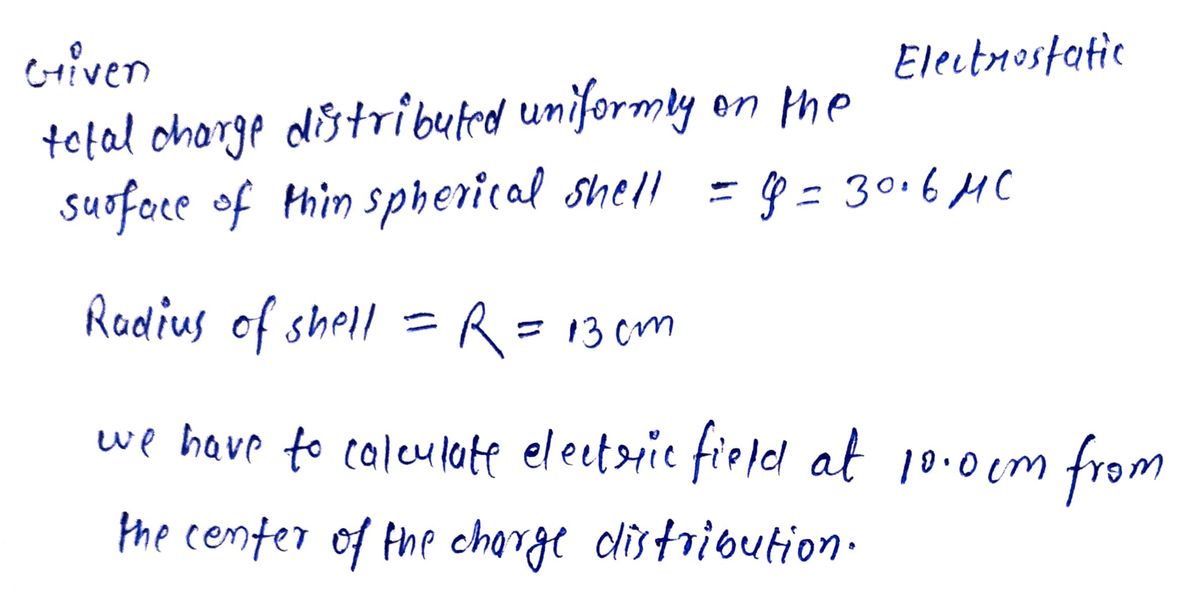 Given
Electrostatic
total charge distributed uniformly on the
surface of thin spherical shell = Q = 30.6 μC
Radius of shell = R = 13 cm
we have to calculate electric field at 10.0 cm from
the center of the charge distribution.